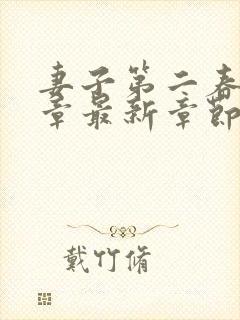 妻子第二春
章最新章節
戴竹脩